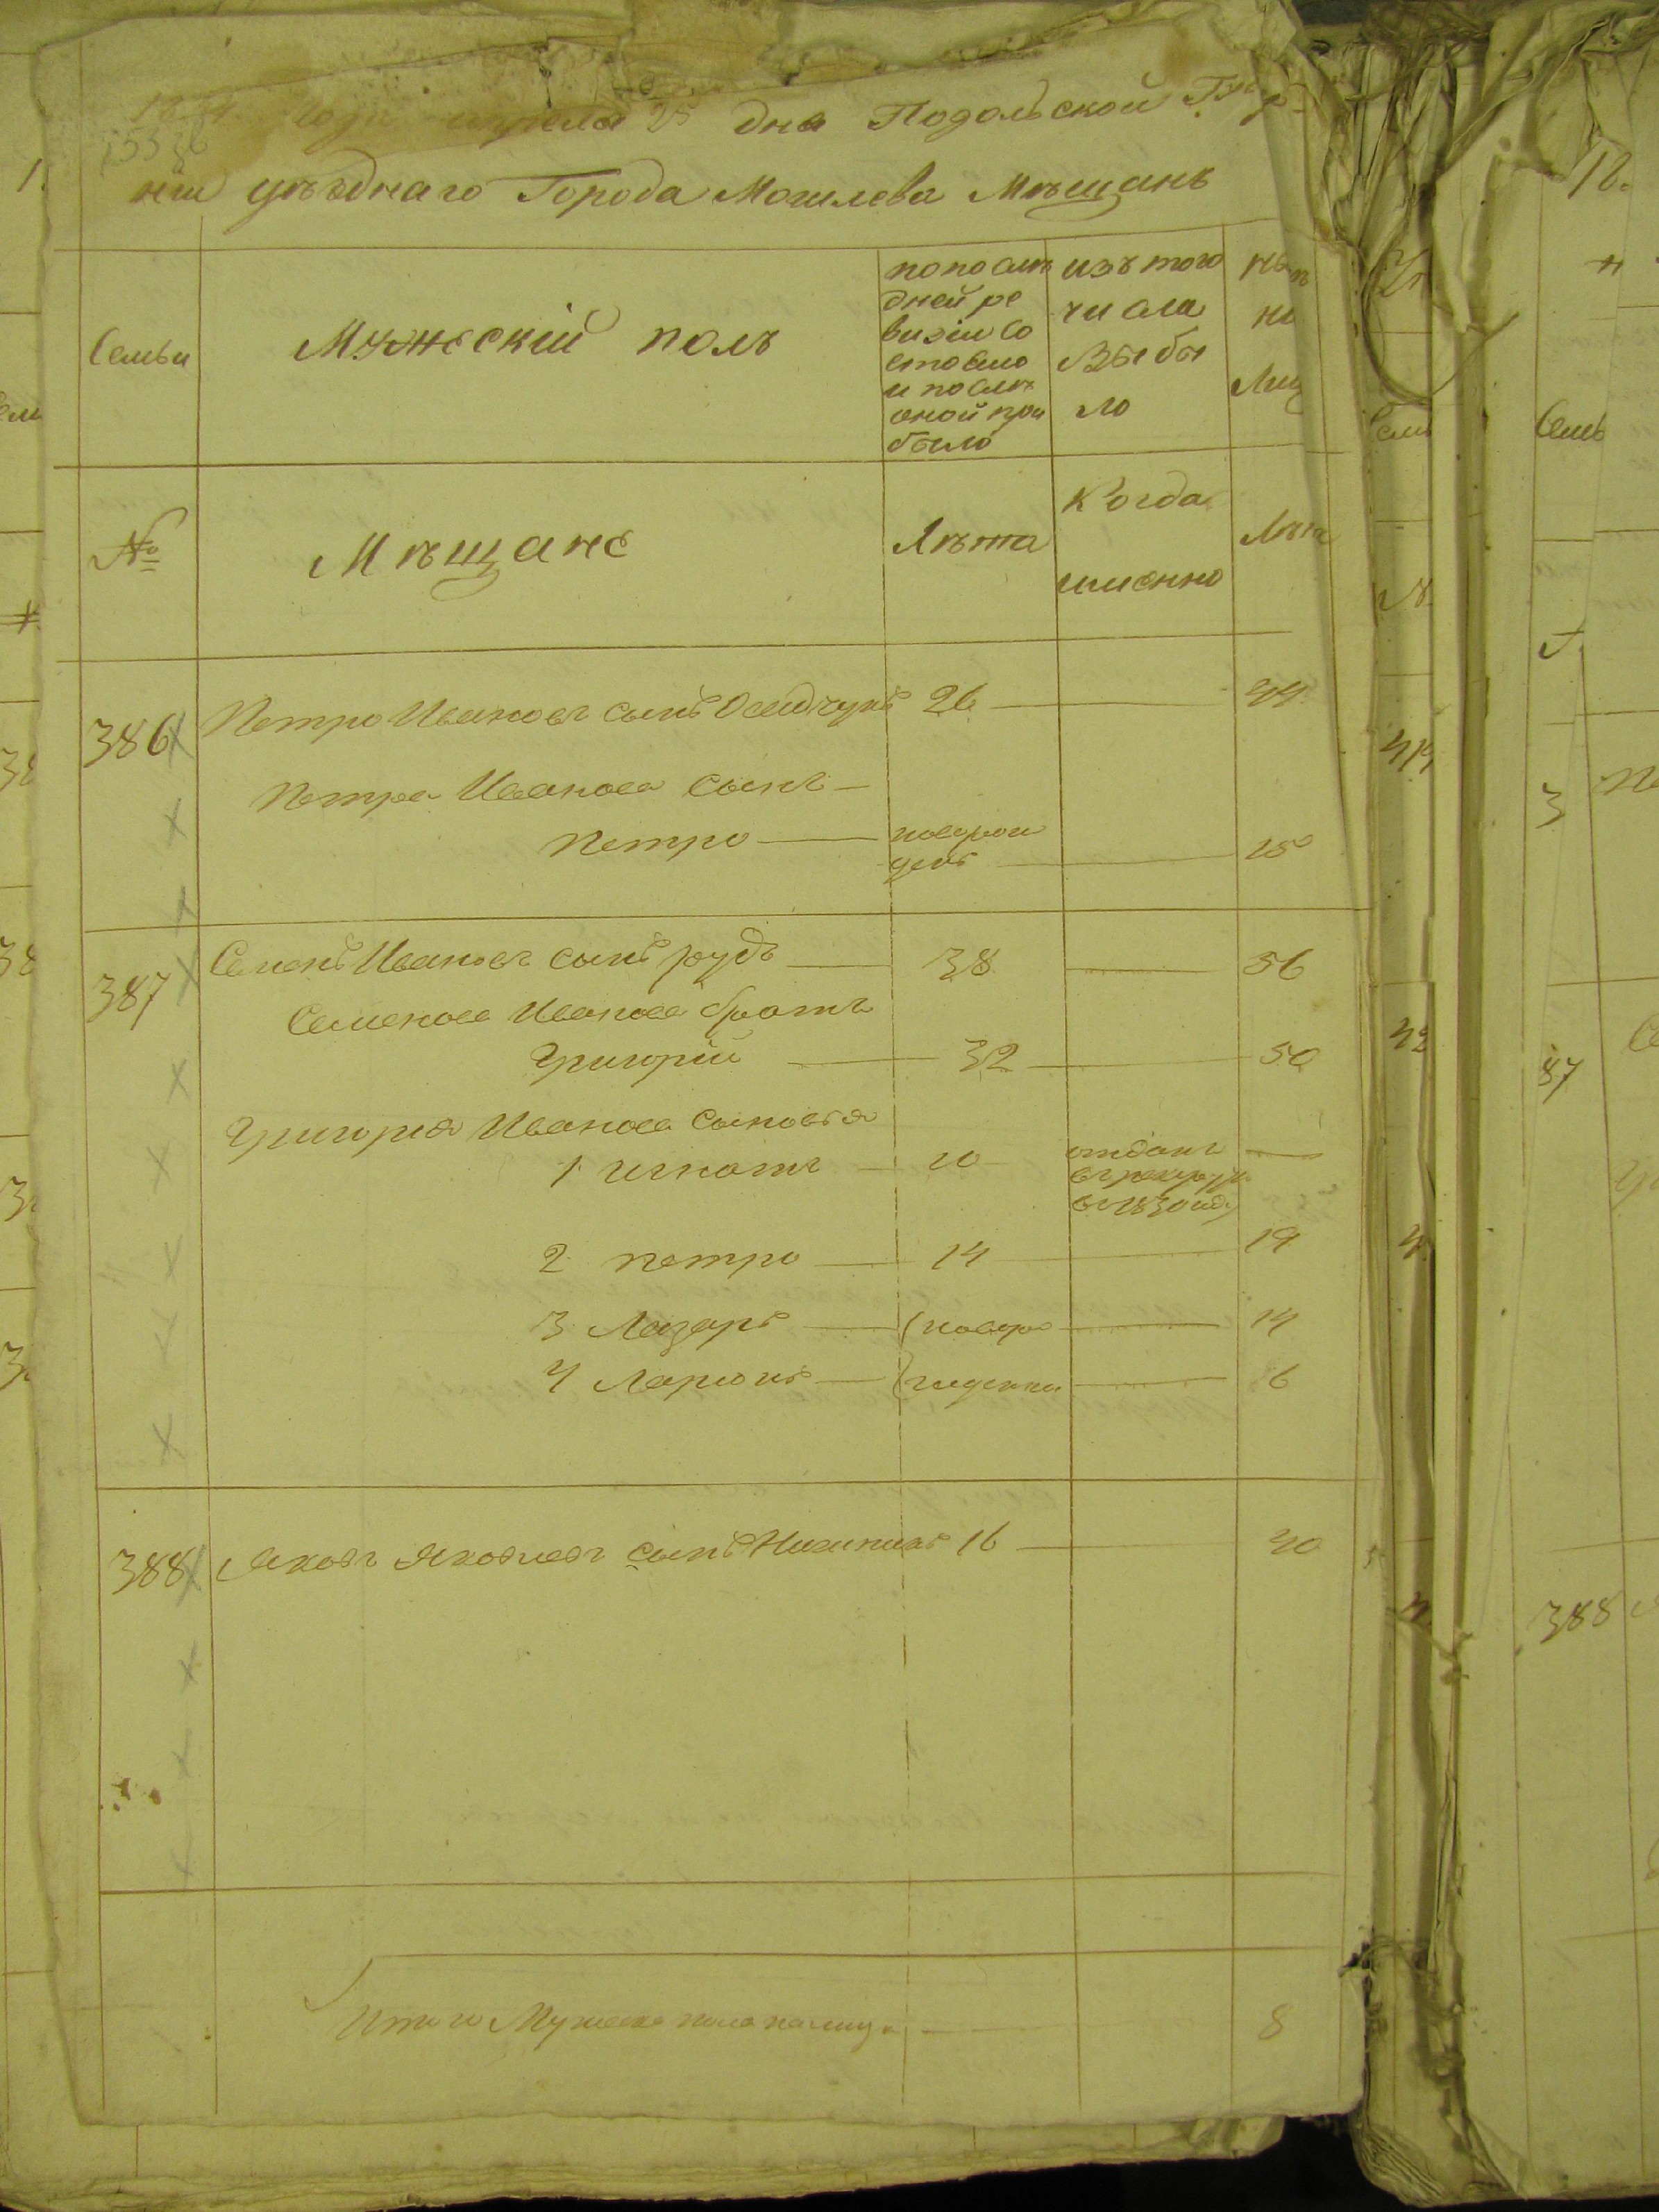 апреля 25 дня Подольской Губер
ніи уѣзднаго Города Могилева Мѣщанъ
Семьи
Мужескій полъ
по послѣ
дней ре
визіи со
стояло
и послѣ
оной при
было
изъ того
числа
выбы
ло
нѣ
на
лиц
№
Мѣщане
Лѣта
Когда
именно
Лѣта
386 Петро Ивановъ сынъ Осадчукъ 26 44
Петра Иванова сынъ
Петро новорож
денъ 15
387 Семенъ Ивановъ сынъ рудъ 38 56
Семенова Иванова братъ
Григорій 32 50
Григорія Иванова сыновья
1 игнатъ 20 отданъ
въ рекруты
въ 1830 год.
2 петро 14 19
3 Лазарь новоро 14
4 Ларіонъ жденны 6
388 Яковъ Яковлевъ сынъ 16 30
Итого Мужеска пола налицо 8